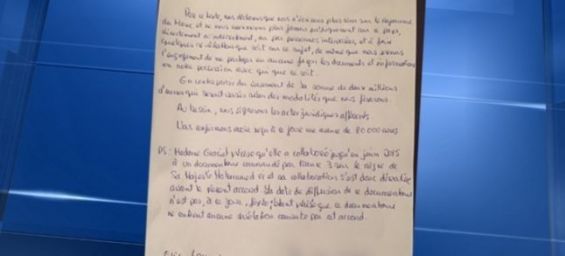 Par ce texte, nous déclarons que nous n'écrirons plus rien sur le Royaume
du Maroc et ne nous exprimerons plus publiquement sur ce pays,
directement ou indirectement, ou par personnes interposées, et à faire
quelque révélation que ce soit sur ce sujet, de même que nous prenons
l'engagement de ne partager en aucune façon les documents et informations
en notre possession avec qui que ce soit.
En contrepartie du versement de la somme de deux millions
d'euros qui seront versés selon des modalités que nous fixerons.
Au besoin, nous signerons les actes juridiques afférents.
Nous confirmons avoir reçu à ce jour une avance de 80 000 euros
PS: Madame Graciet précise qu'elle a collaboré jusqu'en juin 2015
à un documentaire commandé par France 3 sur le règne de
Sa Majesté Mohamed VI et sa collaboration s'est donc déroulée
avant le présent accord. La date de diffusion de ce documentaire
n'est pas, à ce jour, fixée, étant précisé que ce documentaire
ne contient aucune révélation couverte par cet accord.